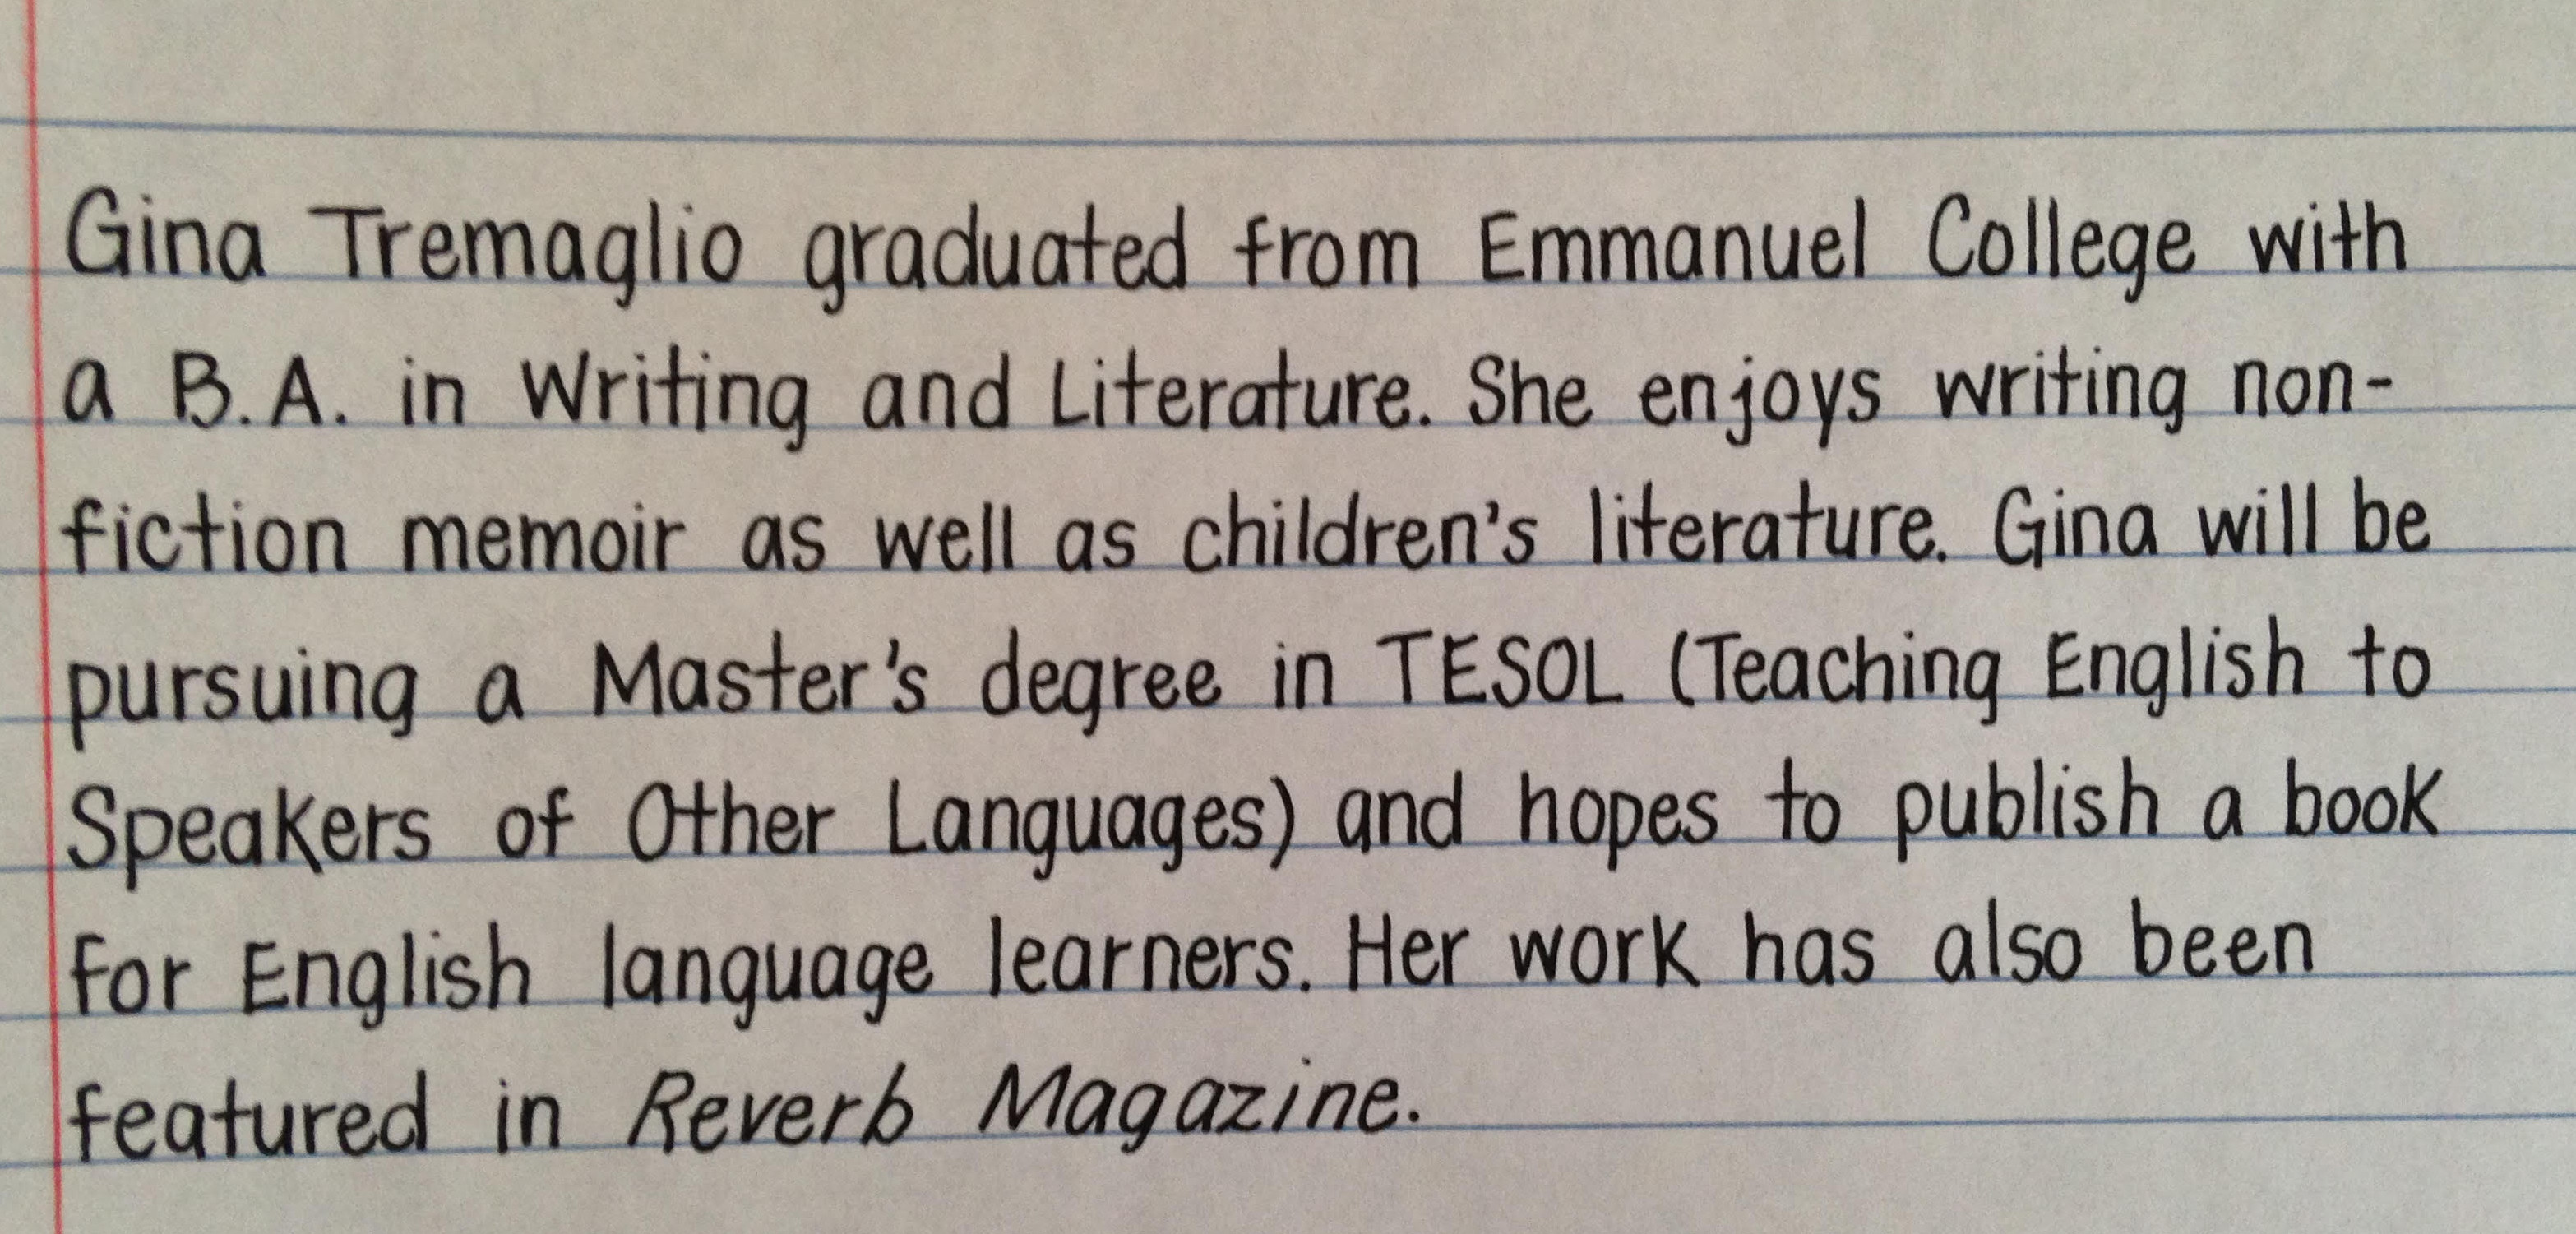 Gina Tremaglio graduated from Emmanuel College with
a B.A. in Writing and Literature. She enjoys writing non-
fiction memoir as well as children's literature. Gina will be
pursuing a Master's degree in TESOL (Teaching English to
Speakers of Other Languages) and hopes to publish a book
for English language learners. Her work has also been
featured in Reverb Magazine.